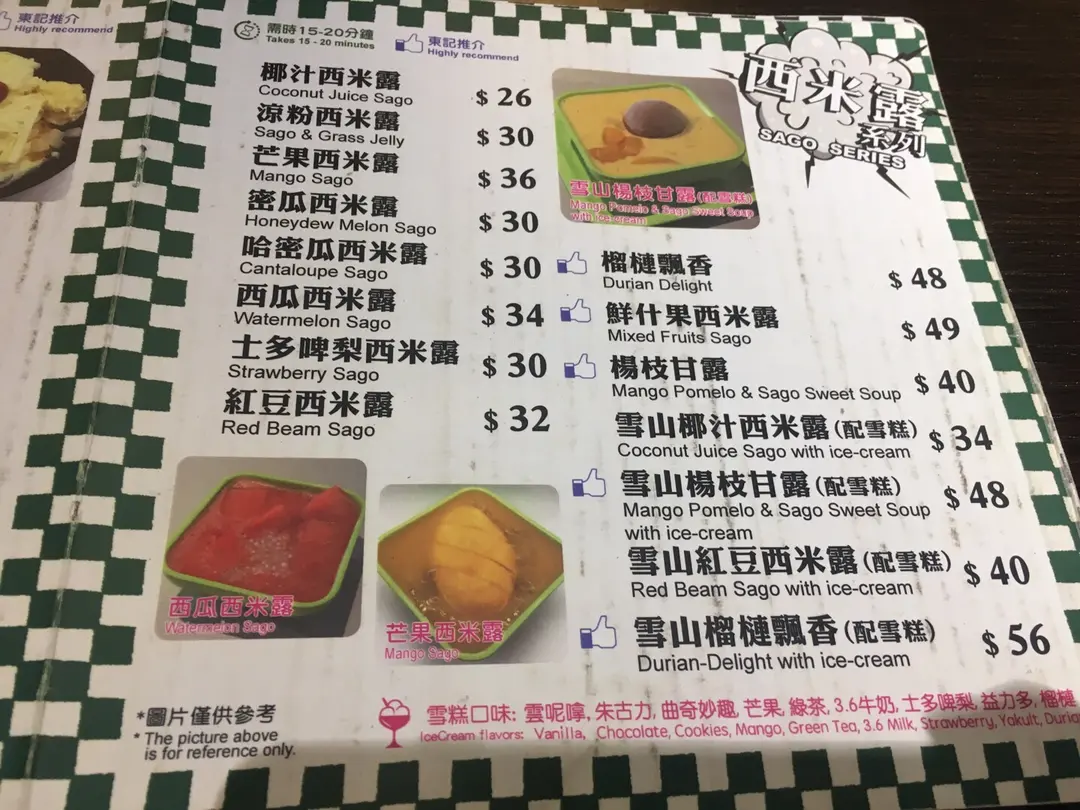 東記推介
Highly recommend
需時15-20分鐘
Takes 15 - 20 minutes
東記推介
Highly recommend
西米露
系列
SAGO SERIES
椰汁西米露 $ 26
Coconut Juice Sago
涼粉西米露 $ 30
Sago & Grass Jelly
芒果西米露 $ 36
Mango Sago
密瓜西米露 $ 30
Honeydew Melon Sago
哈密瓜西米露 $ 30
Cantaloupe Sago
西瓜西米露 $ 34
Watermelon Sago
士多啤梨西米露 $ 30
Strawberry Sago
紅豆西米露 $ 32
Red Beam Sago
雪山楊枝甘露(配雪糕)
Mango Pomelo & Sago Sweet Soup
with ice-cream
榴槤飄香 $ 48
Durian Delight
鮮什果西米露 $ 49
Mixed Fruits Sago
楊枝甘露 $ 40
Mango Pomelo & Sago Sweet Soup
雪山椰汁西米露(配雪糕) $ 34
Coconut Juice Sago with ice-cream
雪山楊枝甘露(配雪糕) $ 48
Mango Pomelo & Sago Sweet Soup
with ice-cream
雪山紅豆西米露(配雪糕) $ 40
Red Beam Sago with ice-cream
雪山榴槤飄香(配雪糕) $ 56
Durian-Delight with ice-cream
西瓜西米露
Watermelon Sago
芒果西米露
Mango Sago
*圖片僅供參考
* The picture above
is for reference only.
雪糕口味: 雲呢嗱, 朱古力, 曲奇妙趣, 芒果, 綠茶, 3.6牛奶, 士多啤梨, 益力多, 榴槤
IceCream flavors: Vanilla, Chocolate, Cookies, Mango, Green Tea, 3.6 Milk, Strawberry, Yakult, Duria